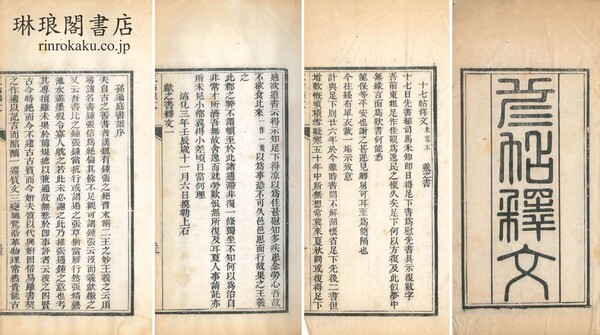 琳琅閣書店
rinrokaku.co.jp
帖釋文
十七帖釋文 羲之書
十七日先書郗司馬未知即日得足下書為慰先書具示復數字
吾前東粗足作佳觀為逸民之懷久矣足下何以方復及此似夢中
無緣言面為歎書何能悉
龍保等平安也謝之甚遲見卿舅可耳至為簡隔也
今往絲布單衣財一端示致意
計與足下別廿六年於今雖時書問不解闊懷省足下先後二書但
增歎慨頃積雪凝寒五十年中所無想頃如常冀來夏秋間或復得足下
適欲遣書云得示知足下得涼以為佳甚慰知多疾患念勞心吾故
不欲食比來 作一 以為事恐不可久邑邑思面行故果之王羲
之
此郡之弊不謂頓至於此諸逋滯非復一條獨坐不知何以為治自
非常才所濟吾無故舍逸而就勞歎恨無所復及耳夏人事請託亦
所未見小都冀得小差頃日當何理
淳化三年壬辰歲十一月六日摸勒上石
獻之書釋文一
孫過庭書譜序
夫自古之善書者漢魏有鍾張之絕晉末稱二王之妙王羲之云頃
尋諸名書鍾張信為絕倫其餘不足觀可謂鍾張云沒而羲獻繼之
又云吾書比之鍾張鍾當抗行或謂過之張草猶當雁行然張精熟
池水盡墨假令寡人耽之若此未必謝之此乃推張邁鍾之意也考
其專擅雖未果於前規摭以兼通故無慙於即事評者云彼之四賢
古今特絕而今不逮古古質而今妍夫質以代興妍因俗易雖書契
之作適以記言而醇醨一遷質文三變馳騖沿革物理常然貴能古